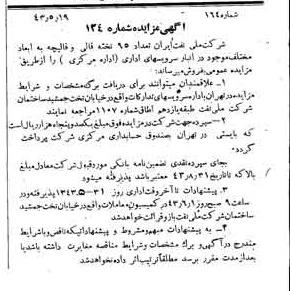 شماره ۱۶۴ ۱۹ر۵ر۴۳
آگهی مزایده شماره ۱۲۴
شرکت ملی نفت ایران تعداد ۹۵ تخته قالی و قالیچه به ابعاد
مختلف موجود در انبار سرویسهای اداری (اداره مرکزی) را از طریق
مزایده عمومی بفروش میرساند:
۱ـ علاقمندان میتوانند برای دریافت برگ مشخصات و شرایط
مزایده در تهران بادارسرویسهای تدارکات واقع در خیابان تخت جمشید ساختمان
شرکت ملی نفت طبقه یازدهم اطاق شماره ۱۱۰۷ مراجعه نمایند
۲ـ سپرده جهت شرکت در مزایده فوق مبلغ یکصد و پنجاه هزار ریال است
که بایستی در تهران بصندوق حسابداری مرکزی شرکت پرداخت
گردد
بجای سپرده نقدی تضمین نامه بانکی مورد قبول شرکت معادل مبلغ
بالا که تا تاریخ ۳۱ر۸ر۴۳ معتبر باشد پذیرفته میشود
۳ـ پیشنهادات تا آخر وقت اداری روز ۳۱ـ۵ـ۱۳۴۳ پذیرفته و در
ساعت ۹ صبح روز ۱ر۶ر۴۳ در کمیسیون معاملات واقع در خیابان تخت جمشید
ساختمان شرکت ملی نفت باز و قرائت خواهد شد
۴ـ به پیشنهادات مبهم و مشروط و پیشنهاداتیکه ناقص و یا شرایط
مندرج در آگهی و برگ مشخصات و شرایط مناقصه مغایرت داشته باشد یا
بعد از مدت مقرر برسد مطلقا ترتیب اثر داده نخواهد شد